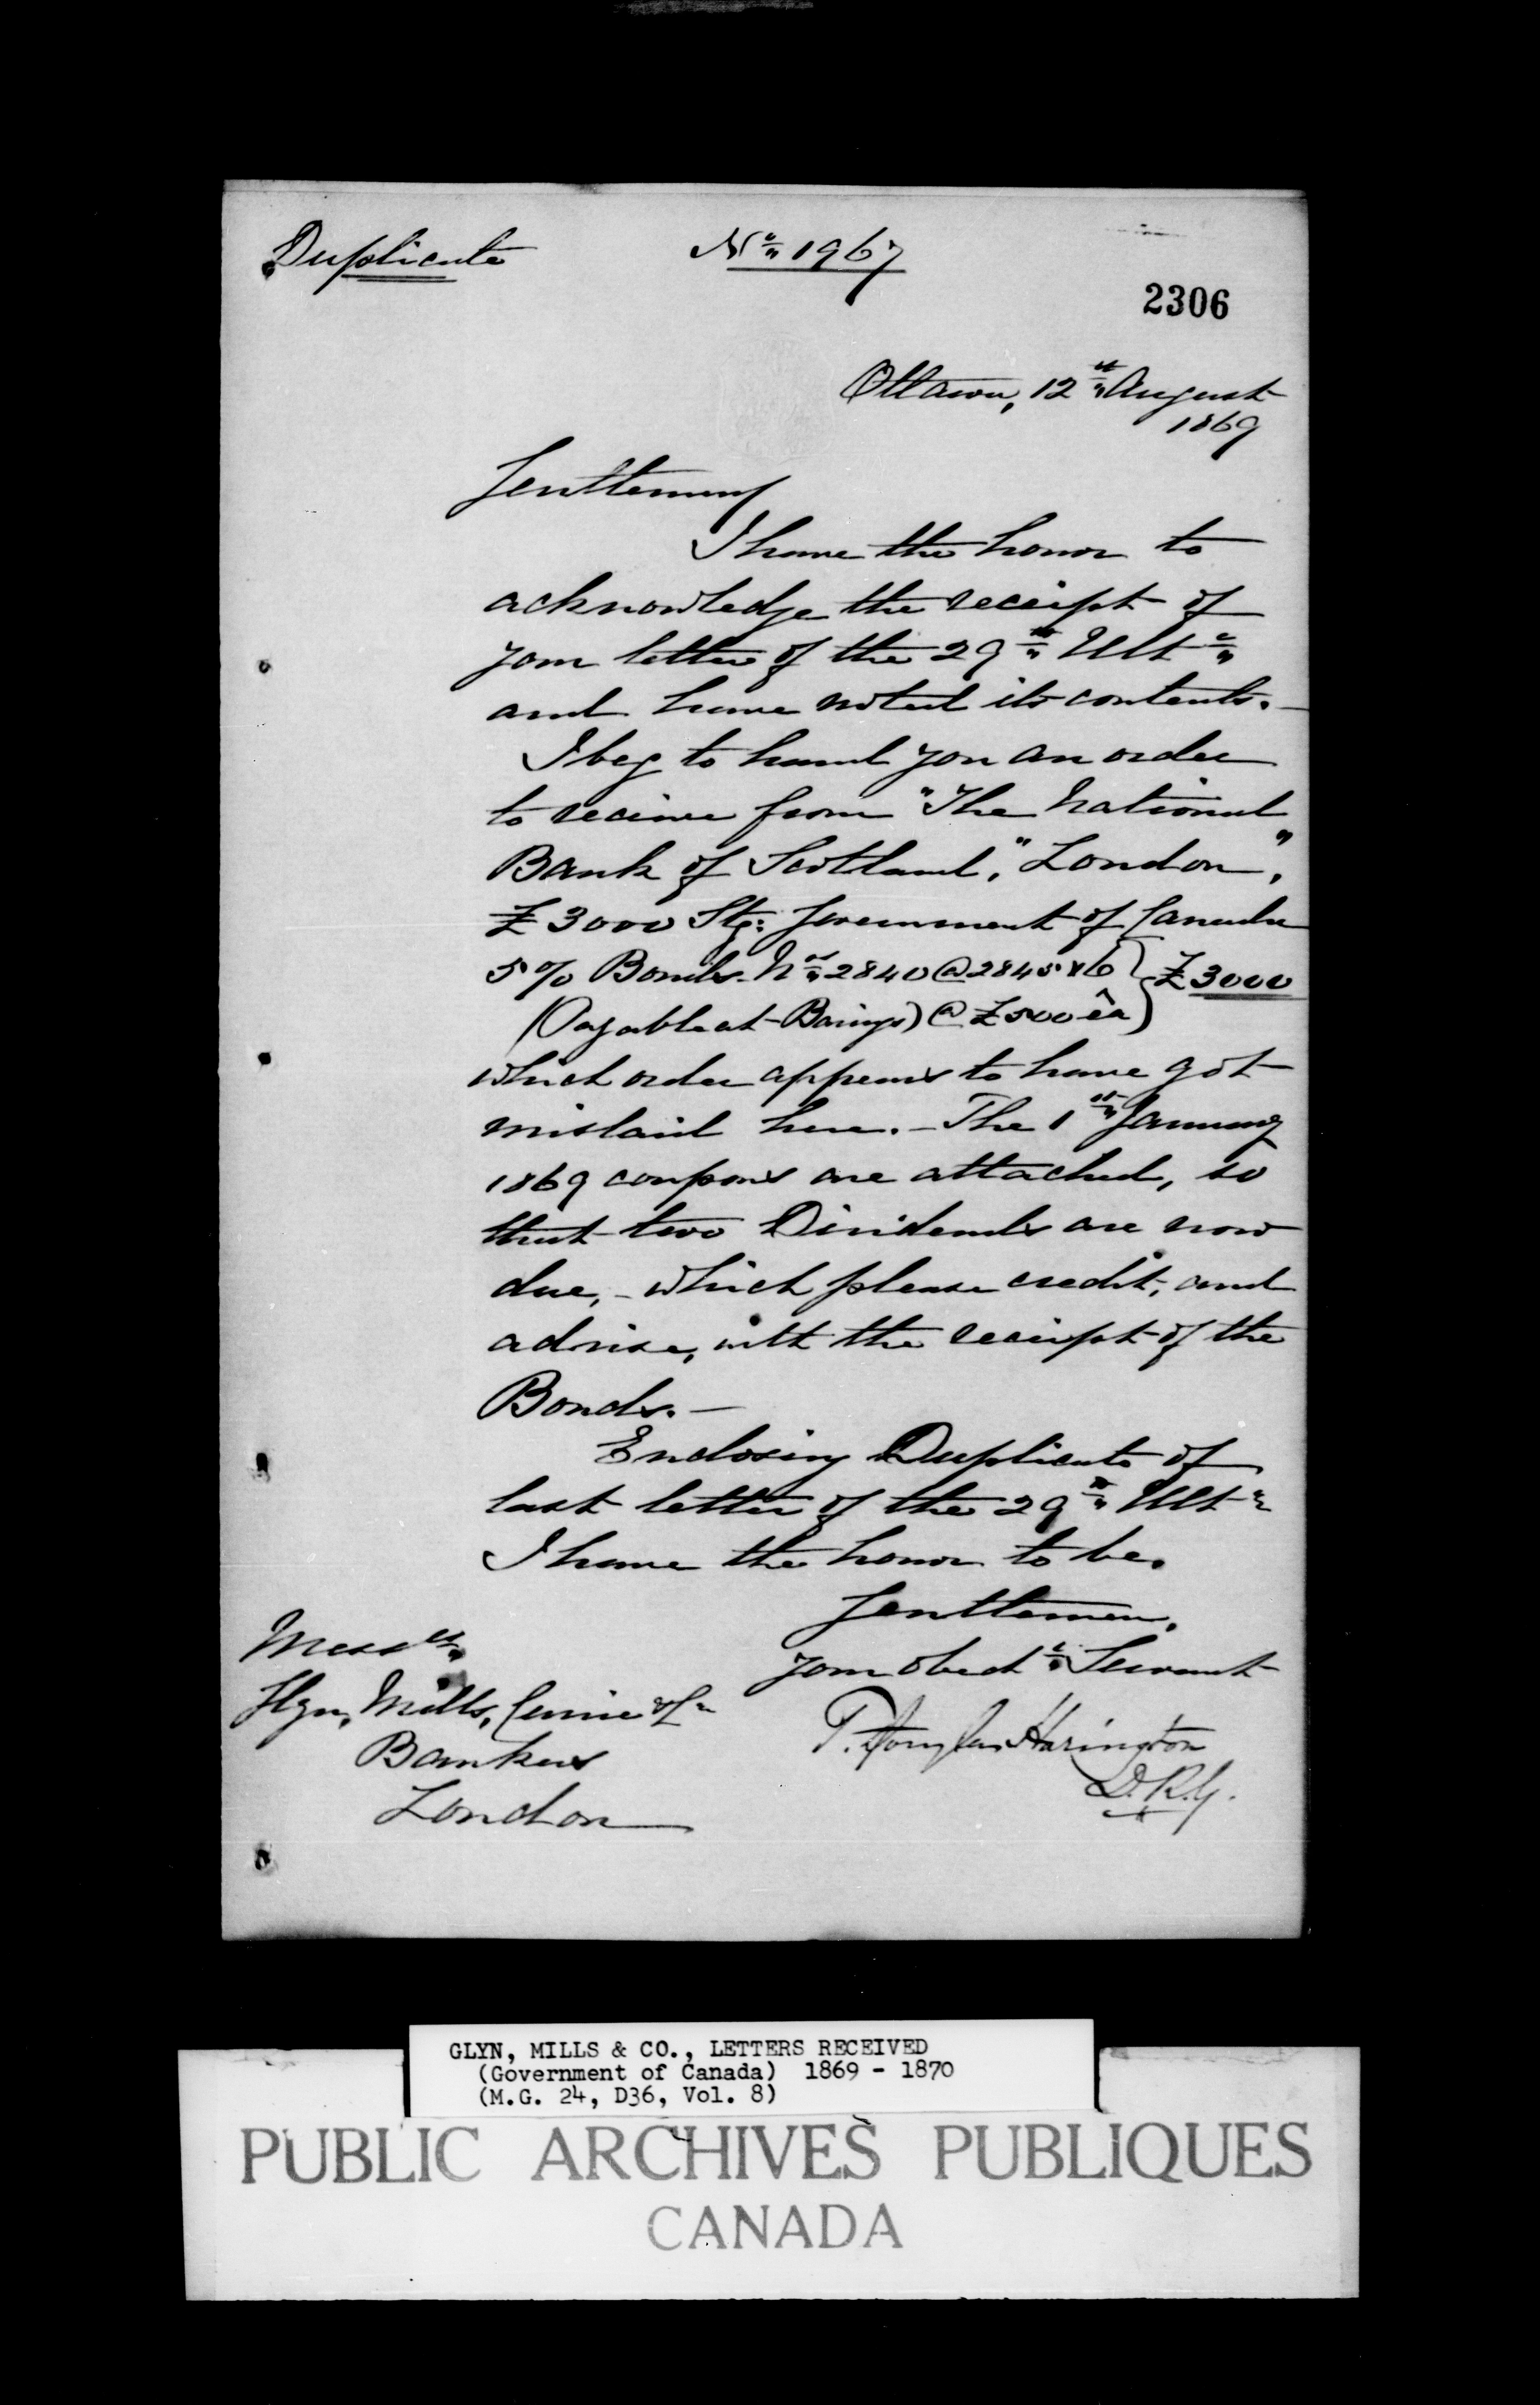 Duplicate
No 1967
2306
Ottawa, 12th August
1869
Gentlemen
I have the honor to
acknowledge the receipt of
your letter of the 29th Ulto
and have noted its contents. -
I beg to hand you an order
to receive from "The National
Bank of Scotland," "London",
£3000 Stg: Government of Canada
5% Bonds. Nos 2840 @ 2845 x 6 } £3000
(Payable at Barings) @ £500 ea }
which order appears to have got
mislaid here. - The 1st January
1869 coupons are attached, so
that two Dividends are now
due, - which please credit, and
advise, with the receipt of the
Bonds. -
Enclosing Duplicate of
last letter of the 29th Ulto
I have the honor to be.
Gentlemen,
your obedt Servant
T. Douglas Harington
D.R.G.
Messrs
Glyn, Mills, Currie & Co
Bankers
London
GLYN, MILLS & CO., LETTERS RECEIVED
(Government of Canada) 1869 - 1870
(M.G. 24, D36, Vol. 8)
PUBLIC ARCHIVES PUBLIQUES
CANADA